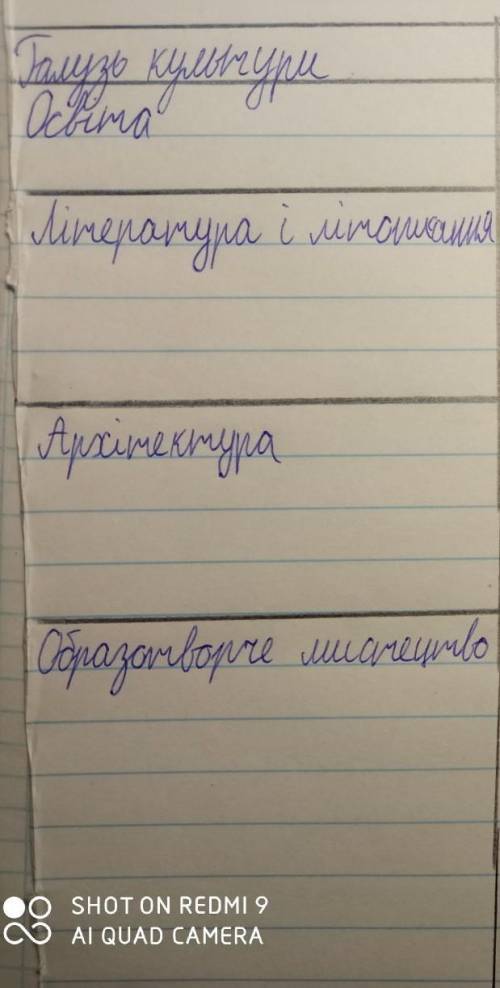 Галузь культури
Освіта
Література і літописання
Архітектура
Образотворче мистецтво
SHOT ON REDMI 9
AI QUAD CAMERA